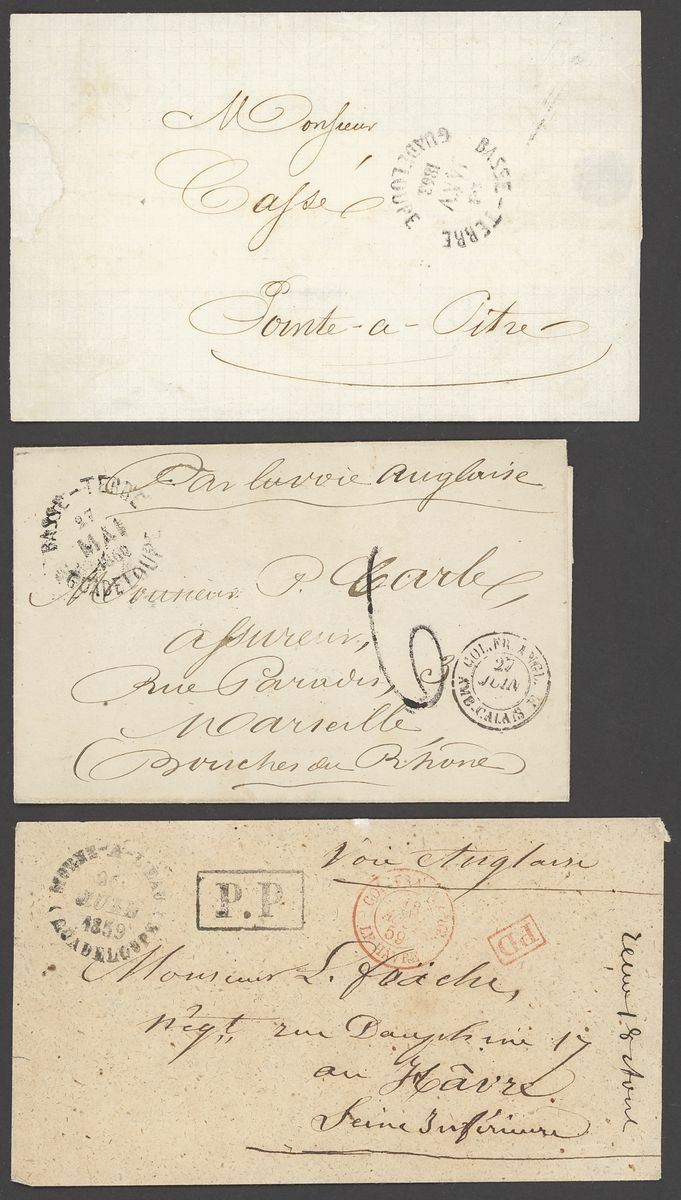 Monsieur
Cassé
Pointe-a-Pitre
BASSE-TERRE
JANV
1863
GUADELOUPE
Par la voie anglaise
BASSE-TERRE
27
MAI
1860
GUADELOUPE
Monsieur P. Carle,
assureur,
Rue Paradis, 3
Marseille,
(Bouches du Rhône)
6
COL. FR. ANGL.
27
JUIN
AMB-CALAIS
Voie Anglaise
MORNE-A-L'EAU
26
1859
GUADELOUPE
P.P
COL. FR.
59
LE HAVRE
PD
Monsieur L. Foäche,
Négt. rue Dauphine 17
au Hâvre
Seine Inférieure
reçu 18 Aout